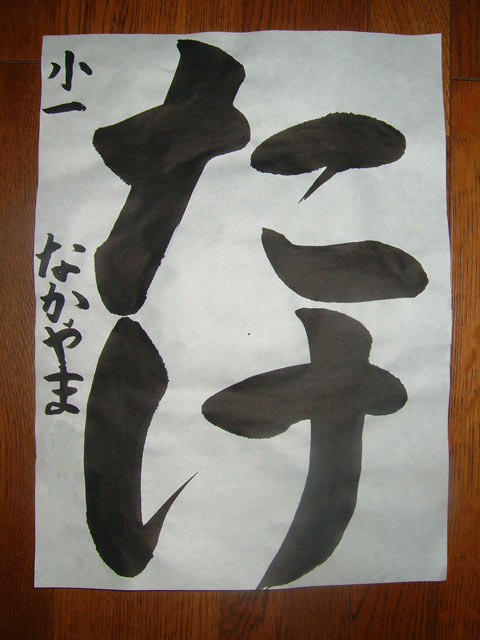 たけ
小一
なかやま